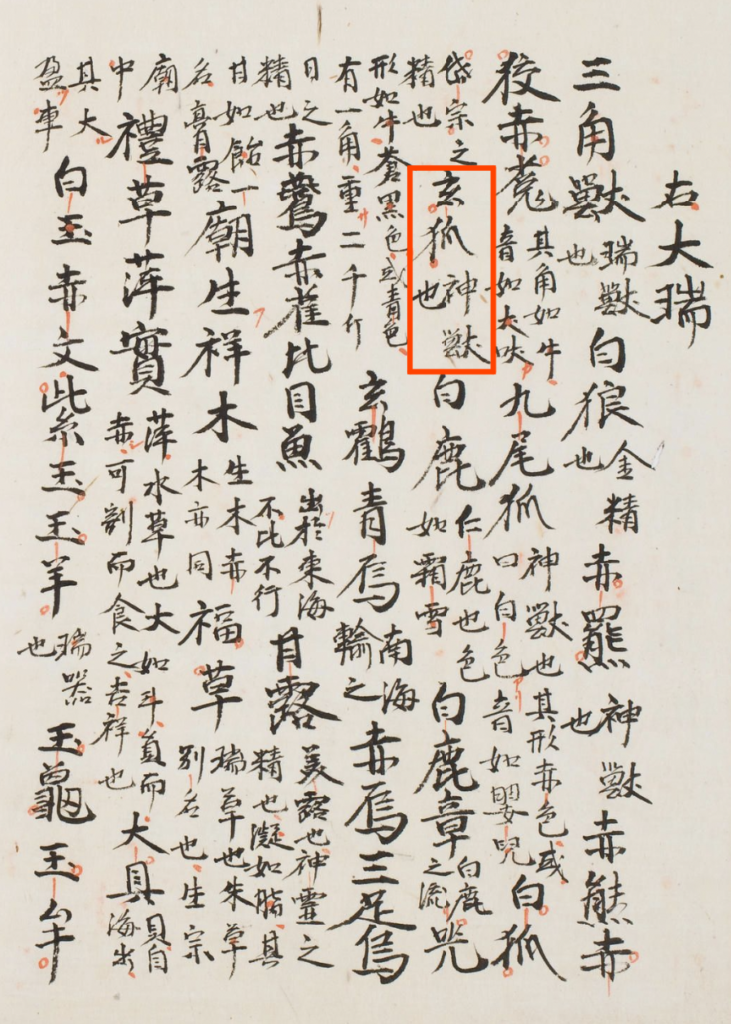 右大瑞
三角獸瑞獸也白狼金精也赤羆神獸也赤熊赤
狡赤菟其角如牛音如犬吠九尾狐神獸也其形赤色或曰白色音如嬰兒白狐
岱宗之精也玄狐神獸也白鹿仁鹿也色如霜雪白鹿章白鹿之流兕
形如牛蒼黑色或青色有一角重二千斤玄鶴青烏南海輪之赤烏三足烏
日之精也赤鷰赤雀比目魚出於東海不比不行甘露美露也神靈之精也凝如脂其
甘如飴一名膏露廟生祥木生木赤木亦同福草瑞草也朱草別名也生宗
廟中禮草萍實萍水草也大如斗員而赤可剖而食之吉祥也大貝貝自海出
其大盈車白玉赤文紫玉玉羊瑞器也玉龜玉牟